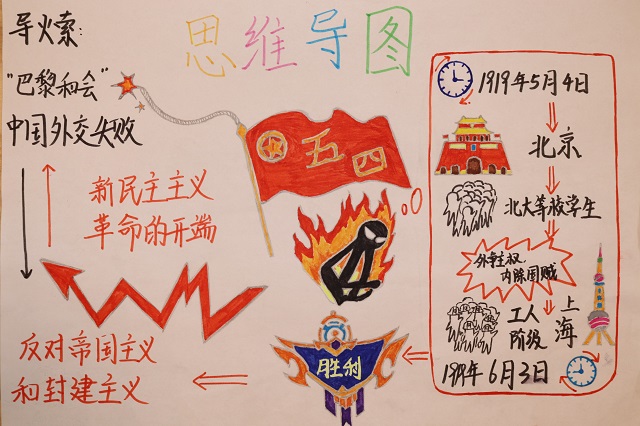 思维导图
导火索:
"巴黎和会"
中国外交失败
新民主主义
革命的开端
反对帝国主义
和封建主义
五四
胜利
1919年5月4日
北京
北大等校学生
外争主权
内除国贼
工人
阶级
上海
1919年6月3日